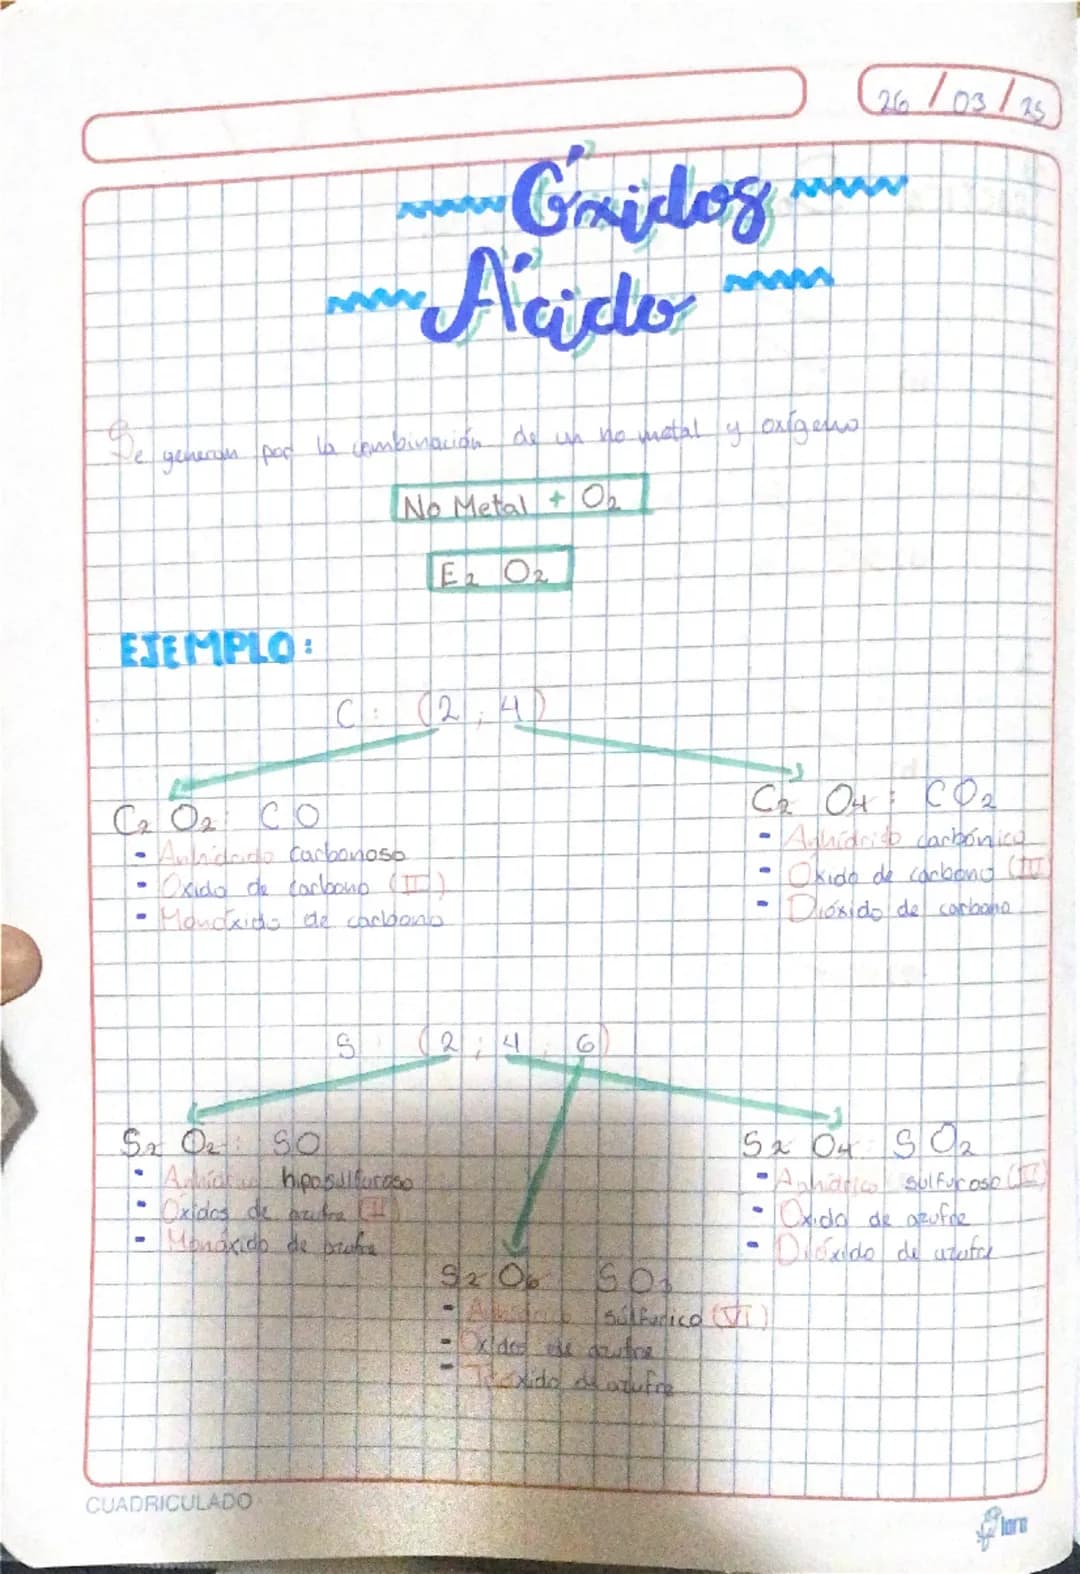 26/03/25
Óxidos
Ácido
Se generan por la combinación de un no metal y oxígeno
No Metal + O2
E2 O2
EJEMPLO:
C: (2, 4)
C2 O2: CO
- Anhídrido carbonoso
- Oxido de carbono (II)
- Monóxido de carbono
C2 O4: CO2
- Anhídrido carbónico
- Oxido de carbono (IV)
- Dióxido de carbono
S: (2; 4, 6)
S2 O2: SO
- Anhídrico hiposulfuroso
- Oxidos de azufre (II)
- Monóxido de azufre
S2 O4: SO2
- Anhídrico sulfuroso (IV)
- Oxido de azufre
- Dióxido de azufre
S2 O6 SO3
- Anhídrico súlfurico (VI)
- Oxidos de azufre
- Trióxido de azufre
CUADRICULADO
loro